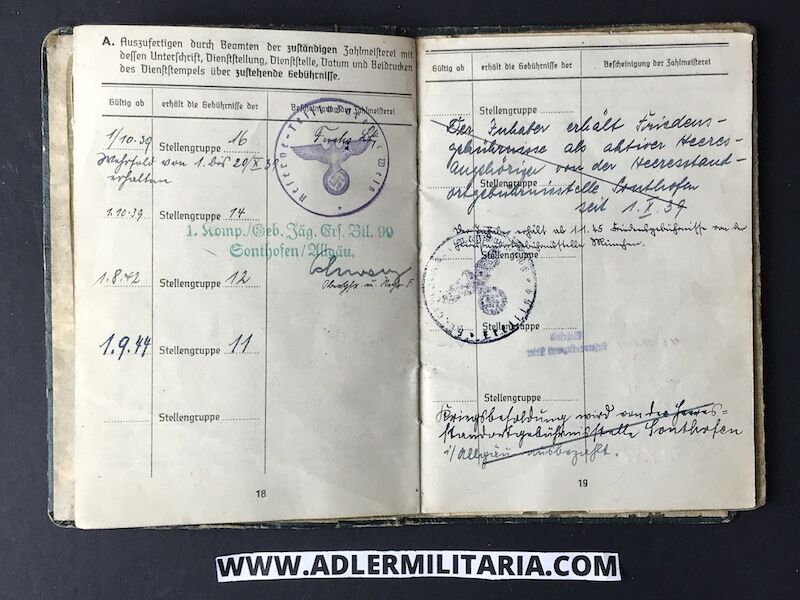 A. Auszufertigen durch Beamten der zuständigen Zahlmeisterei mit
dessen Unterschrift, Dienststellung, Dienststelle, Datum und Beidrucken
des Dienststempels über zustehende Gebührnisse.
Gültig ab erhält die Gebührnisse der Bescheinigung der Zahlmeisterei
1/10.39 Stellengruppe 16
Wehrsold von 1. bis 20/X 39
erhalten
1.10.39 Stellengruppe 14
1. Komp./Geb. Jäg. Ers. Btl. 99
Sonthofen/Allgäu.
1.8.42 Stellengruppe 12
1.9.44 Stellengruppe 11
Stellengruppe
18
Gültig ab erhält die Gebührnisse der Bescheinigung der Zahlmeisterei
Stellengruppe
Der Inhaber erhält Friedens-
gebührnisse als aktiver Heeres-
angehöriger von der Heeresstand-
Stellengruppe
ortgebührnisstelle Sonthofen
seit 1.X.39
erhält ab 1.1.45 Friedensgebührnisse von der
München.
Stellengruppe
Stellengruppe
Stellengruppe
Kriegsbesoldung wird von der Heeres-
standortgebührnisstelle Sonthofen
i/Allgäu ausbezahlt.
19
WWW.ADLERMILITARIA.COM